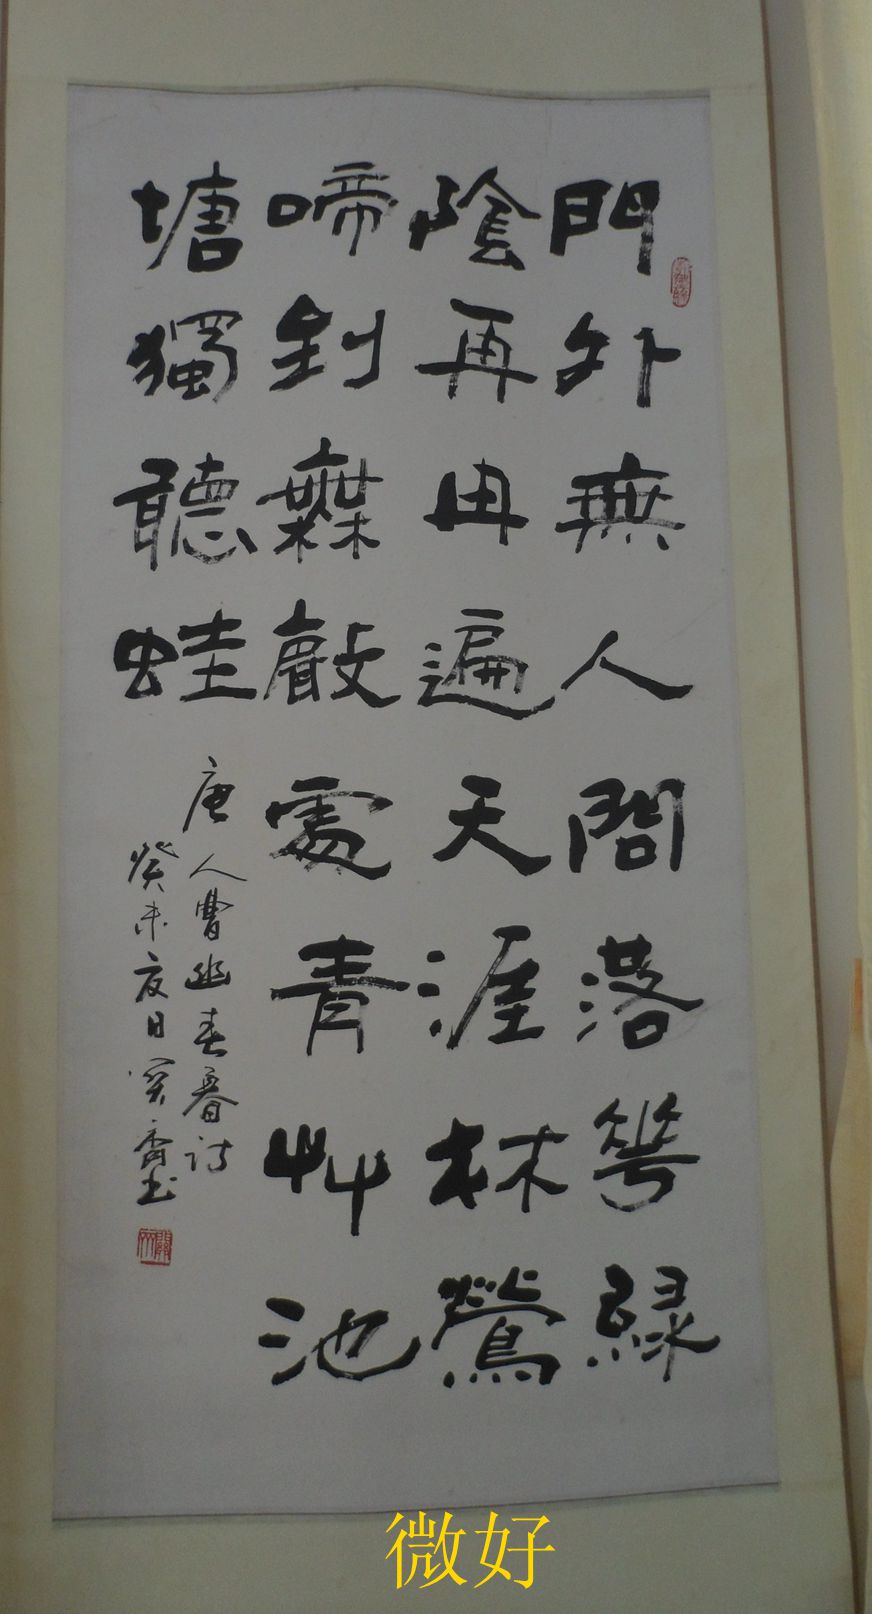 門外無人問落花綠
陰再冉遍天涯林鶯
啼到橆聲處青艸池
塘獨聽蛙
唐人曹幽春暮诗
癸未夏日
微好